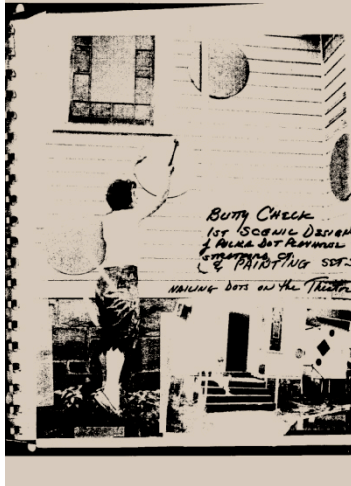 Butty Check
1st Scenic Design
of Polka Dot Playhouse
Stratford CT.
& Painting Sets
Nailing Dots on the Theatre